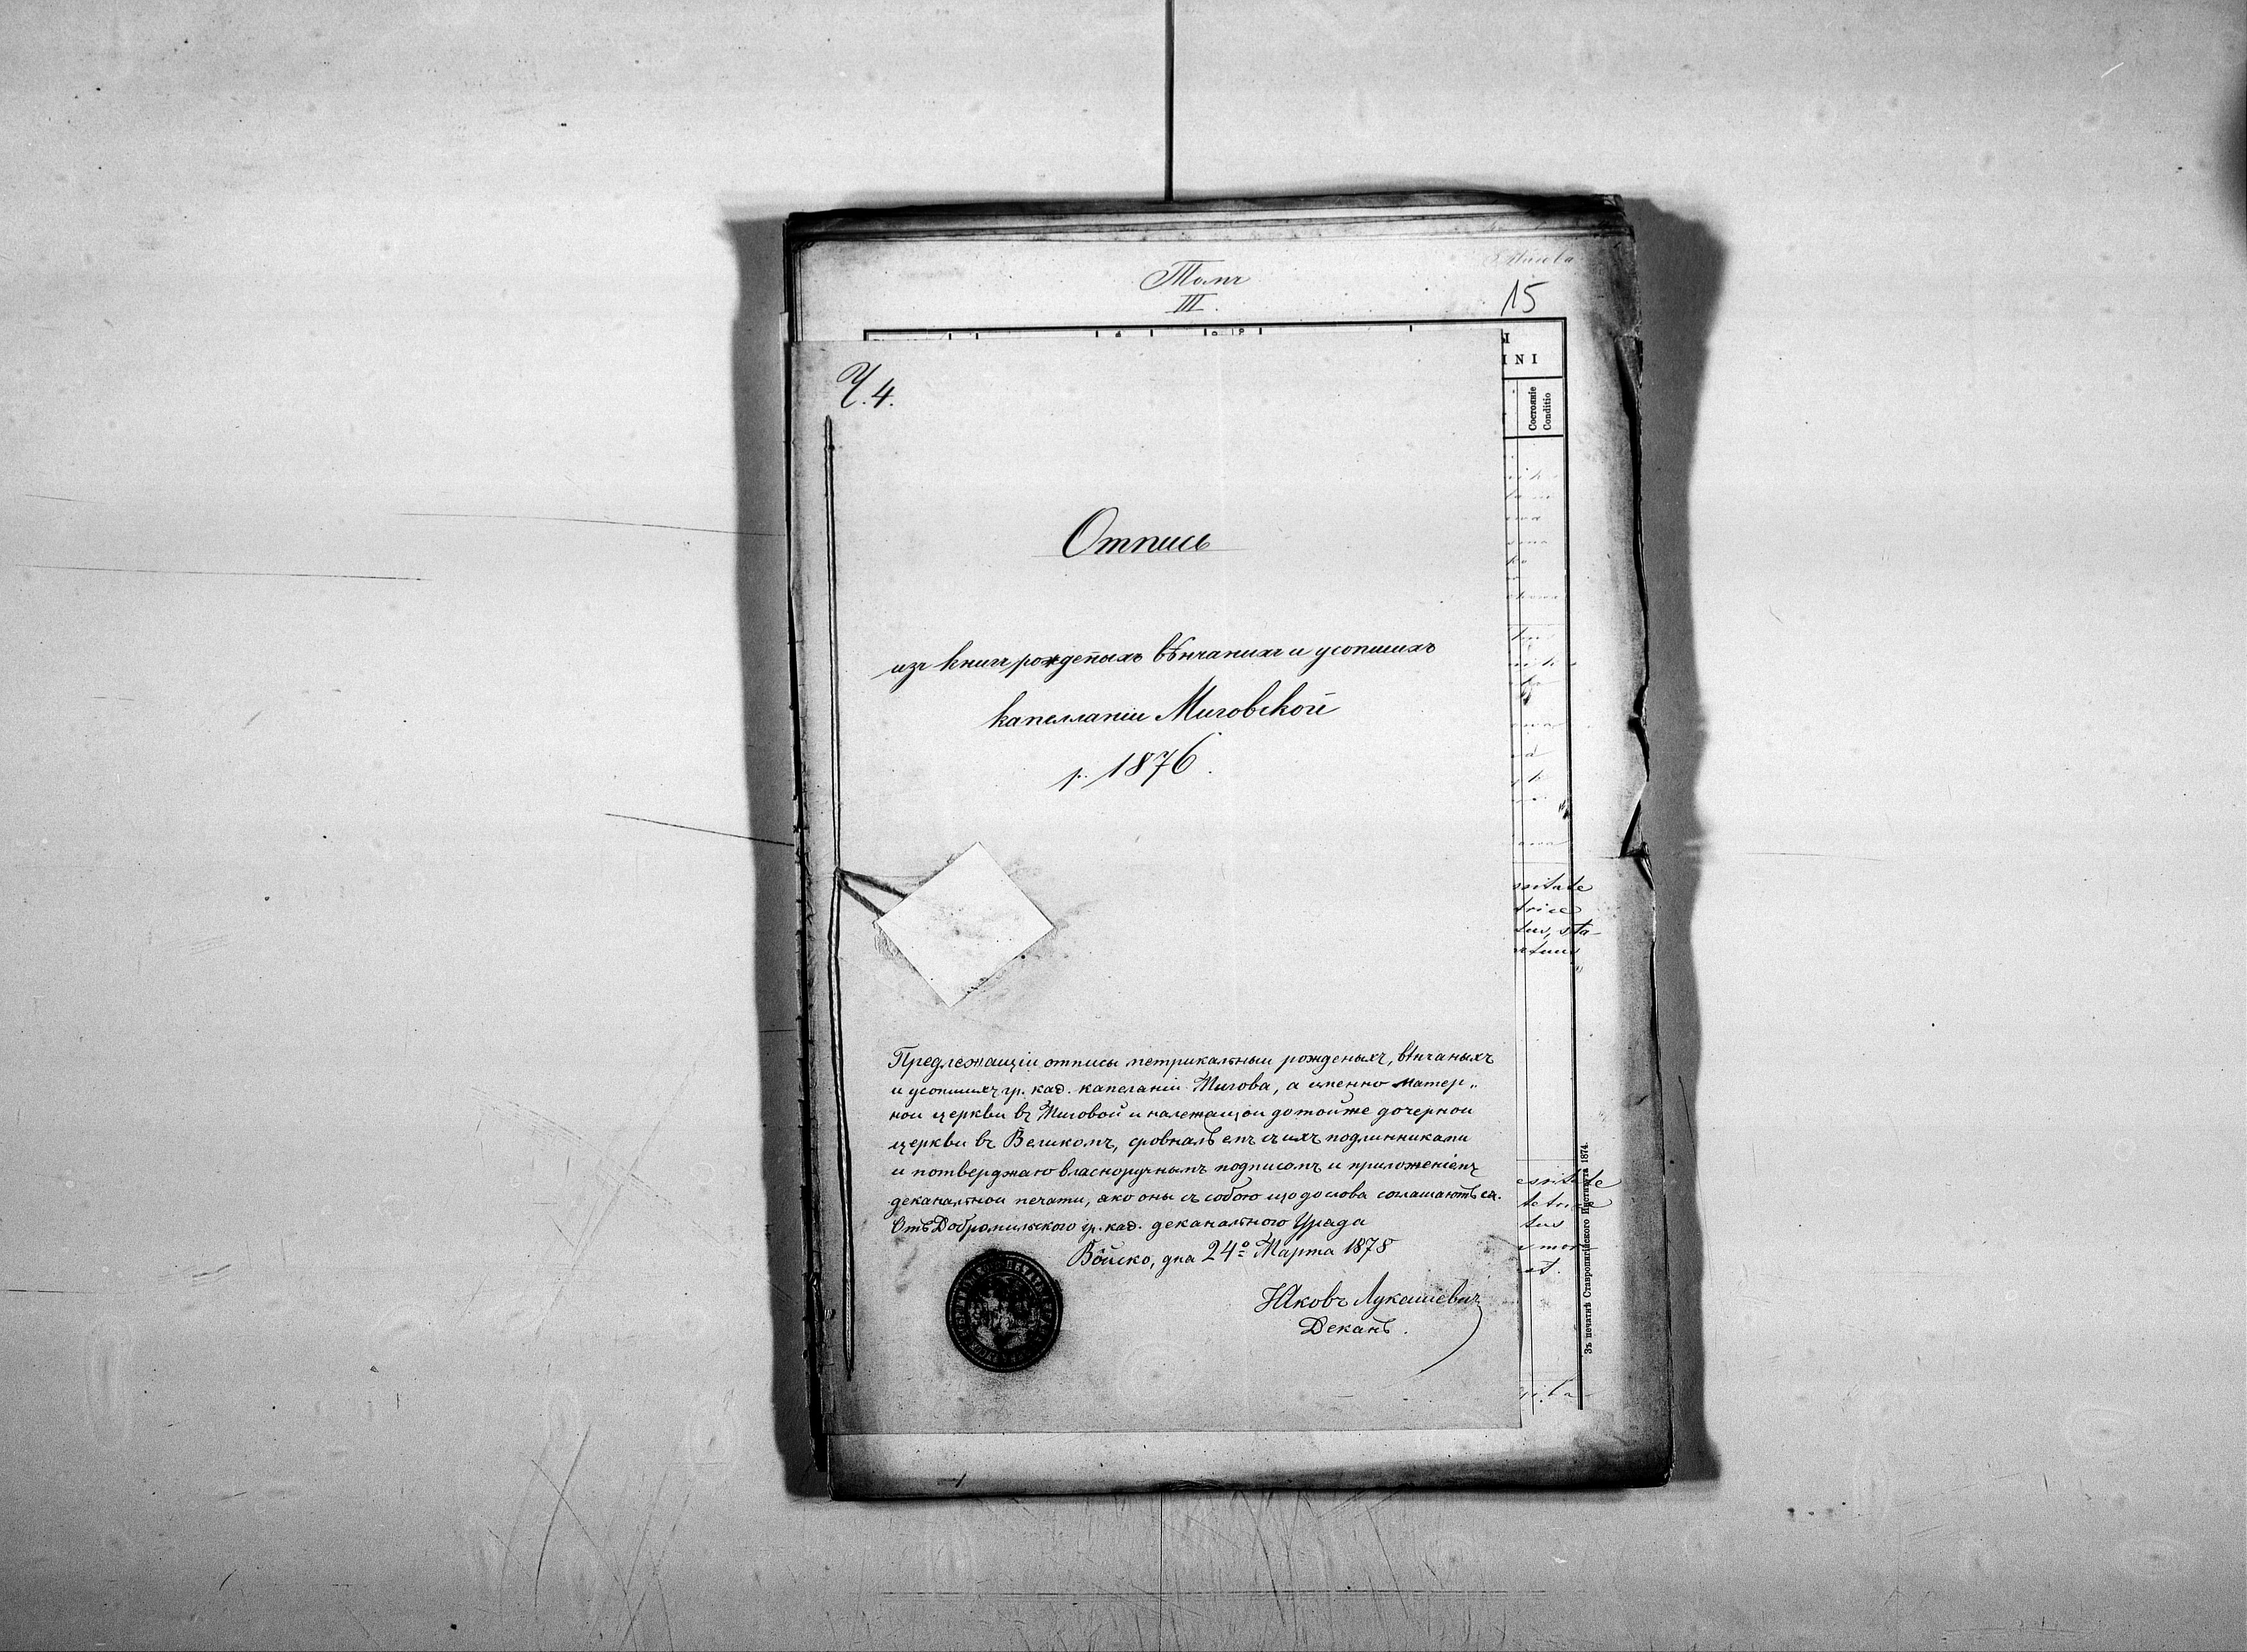 Томъ
III.
15
INI
Состоянiе
Conditio
Ч. 4.
Отпись
изъ книгъ рожденыхъ вѣнчаныхъ и усопшихъ
капелланiи Миговской
р. 1876.
Предлежащiи отписы метрикальныи рожденыхъ, вѣнчаныхъ
и усопшихъ гр. каѳ. капеланiи Мигова, а именно матер„
нои церкви въ Миговой и належащои до тойже дочернои
церкви въ Великомъ, сровналъ емъ съ ихъ подлинниками
и потверджаю власноручнымъ подписомъ и приложенiемъ
деканальнои печати, яко оны съ собою що до слова соглашаютъ ся.
Отъ Добромильского гр. каѳ. деканального Уряда
Вôйско, дня 24º Марта 1878
Яковъ Лукашевич
Деканъ.
ssitate
trice
tus, sta-
Зъ печатнѣ Ставропигiйского Института 1874.